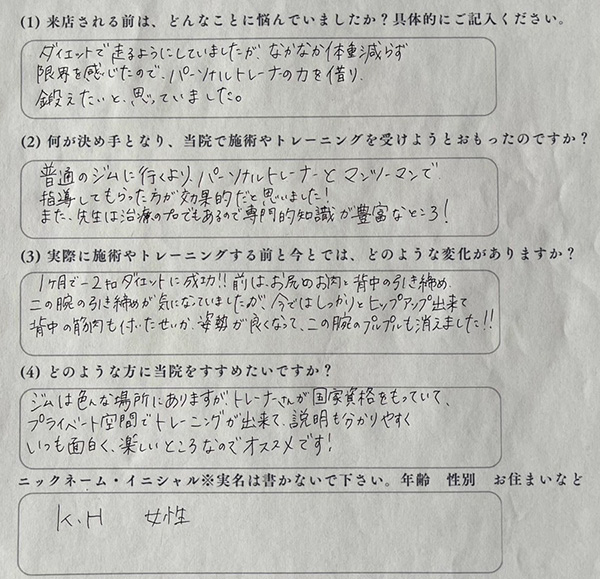 (1) 来店される前は、どんなことに悩んでいましたか？具体的にご記入ください。
ダイエットで走るようにしていましたが、なかなか体重減らず
限界を感じたので、パーソナルトレーナの力を借り、
鍛えたいと、思っていました。
(2) 何が決め手となり、当院で施術やトレーニングを受けようとおもったのですか？
普通のジムに行くより、パーソナルトレーナーとマンツーマンで、
指導してもらった方が効果的だと思いました！
また、先生は治療のプロでもあるので専門的知識が豊富なところ！
(3) 実際に施術やトレーニングする前と今とでは、どのような変化がありますか？
1ヶ月で-2キロダイエットに成功!! 前は、お尻のお肉と背中の引き締め、
二の腕の引き締めが気になっていましたが、今ではしっかりとヒップアップ出来て
背中の筋肉も付いたせいか、姿勢が良くなって、二の腕のプルプルも消えました!!
(4) どのような方に当院をすすめたいですか？
ジムは色んな場所にありますがトレーナーさんが国家資格をもっていて、
プライベート空間でトレーニングが出来て、説明も分かりやすく
いつも面白く、楽しいところなのでオススメです！
ニックネーム・イニシャル※実名は書かないで下さい。年齢　性別　お住まいなど
K.H　女性